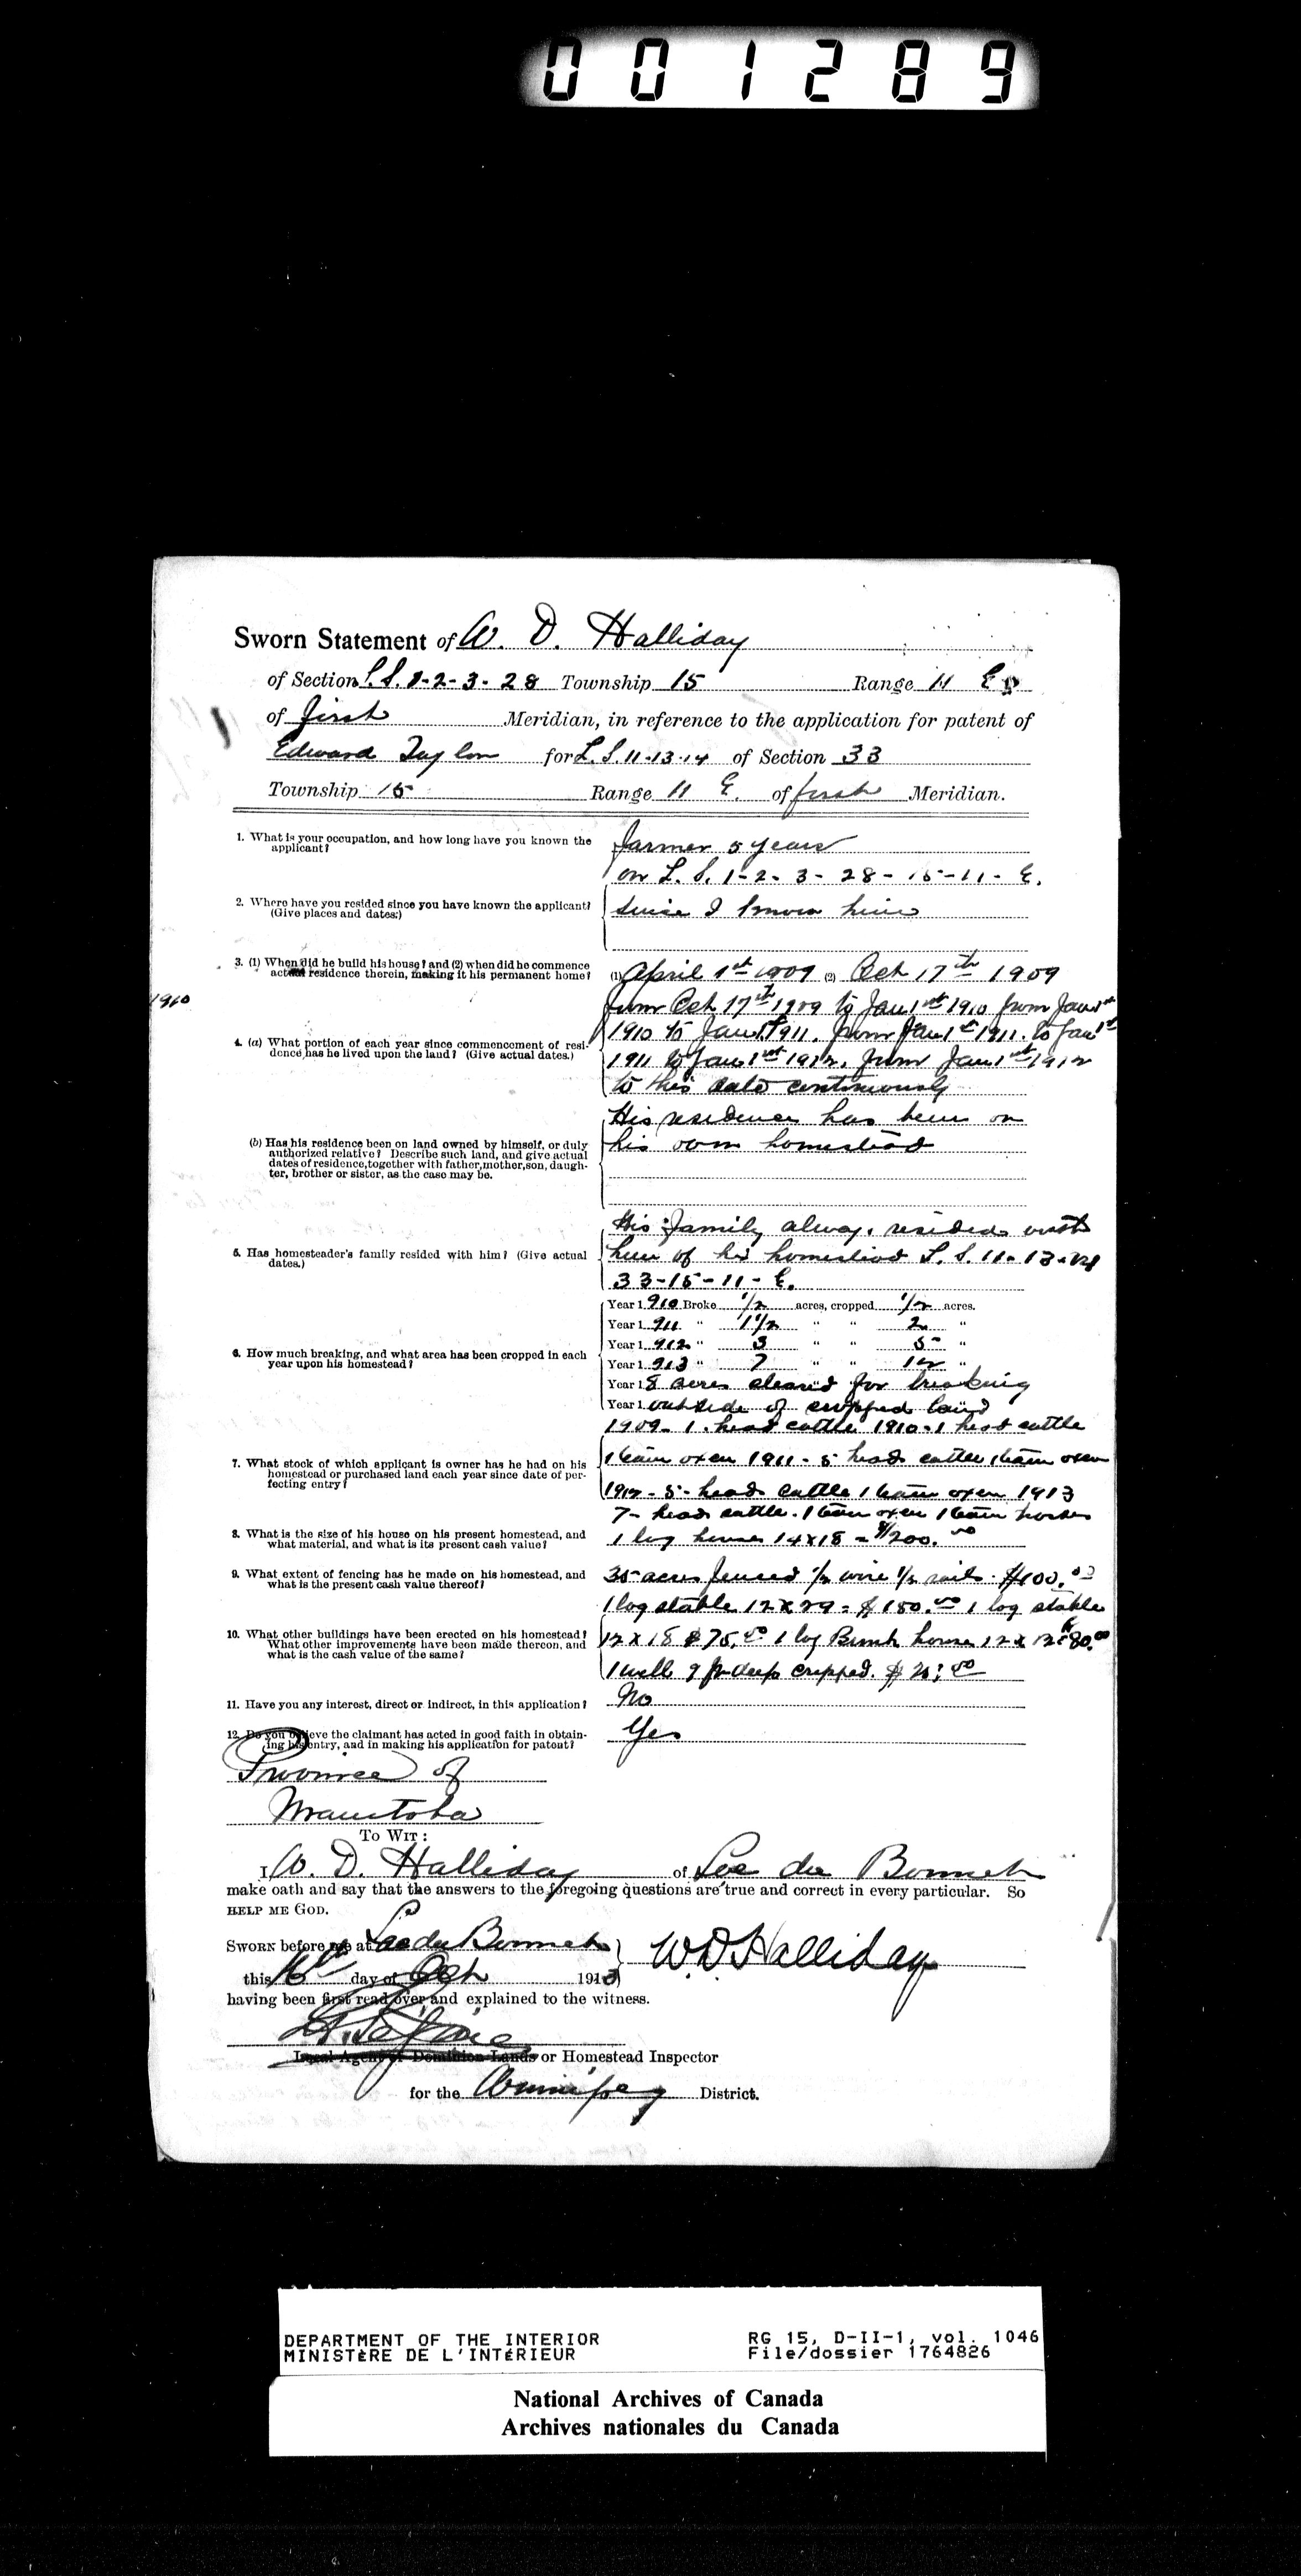 001289
Sworn Statement of W. D. Halliday
of Section L.S. 1-2-3-28 Township 15 Range 11 E
of first Meridian, in reference to the application for patent of
Edward Taylor for L.S. 11-13-14 of Section 33
Township 15 Range 11 E. of first Meridian.
1. What is your occupation, and how long have you known the applicant?
farmer 5 years
on L.S. 1-2-3-28-15-11-E.
2. Where have you resided since you have known the applicant? (Give places and dates.)
since I know him
3. (1) When did he build his house? and (2) when did he commence
actual residence therein, making it his permanent home?
(1) April 1st 1909 (2) Oct 17th 1909
1910
from Oct 17th 1909 to Jan 1st 1910 from Jan 1st
1910 to Jan 1st 1911. from Jan 1st 1911. to Jan 1st
4. (a) What portion of each year since commencement of resi-
dence has he lived upon the land? (Give actual dates.)
1911 to Jan 1st 1912. from Jan 1st 1912
to this date continuously
His residence has been on
his own homestead
(b) Has his residence been on land owned by himself, or duly
authorized relative? Describe such land, and give actual
dates of residence, together with father, mother, son, daugh-
ter, brother or sister, as the case may be.
His family alway. resided with
him of his homestead L.S. 11-13-14
33-15-11-E.
5. Has homesteader's family resided with him? (Give actual
dates.)
Year 1910 Broke 1/2 acres, cropped 1/2 acres.
Year 1911 " 1 1/2 " " 2 "
Year 1912 " 3 " " 5 "
6. How much breaking, and what area has been cropped in each
year upon his homestead?
Year 1913 " 7 " " 12 "
Year 1 8 acres cleared for breaking
Year 1 outside of cropped land
1909- 1. head cattle 1910-1 head cattle
1 team oxen 1911-5 head cattle 1 team oxen
7. What stock of which applicant is owner has he had on his
homestead or purchased land each year since date of per-
fecting entry?
1912-5-head cattle 1 team oxen 1913
7-head cattle. 1 team oxen 1 team horses
8. What is the size of his house on his present homestead, and
what material, and what is its present cash value?
1 log house 14x18 - $200.00
9. What extent of fencing has he made on his homestead, and
what is the present cash value thereof?
35 acres fenced 1/2 wire 1/2 rails. $100.00
1 log stable 12 x 29 = $180.00 1 log stable
10. What other buildings have been erected on his homestead?
What other improvements have been made thereon, and
what is the cash value of the same?
12 x 18 $75.00 1 log house 12 x 12 $80.00
1 well 9 ft deep cropped. $
11. Have you any interest, direct or indirect, in this application?
No
12. Do you believe the claimant has acted in good faith in obtain-
ing his entry, and in making his application for patent?
Yes
Province of
Manitoba
To Wit:
I W. D. Halliday of Lac du Bonnet
make oath and say that the answers to the foregoing questions are true and correct in every particular. So
help me God.
Sworn before me at Lac du Bonnet
this 16th day of Oct 1913
W.D Halliday
having been first read over and explained to the witness.
Local Agent of Dominion Lands or Homestead Inspector
for the Winnipeg District.
DEPARTMENT OF THE INTERIOR
MINISTÈRE DE L'INTÉRIEUR
RG 15, D-II-1, vol. 1046
File/dossier 1764826
National Archives of Canada
Archives nationales du Canada